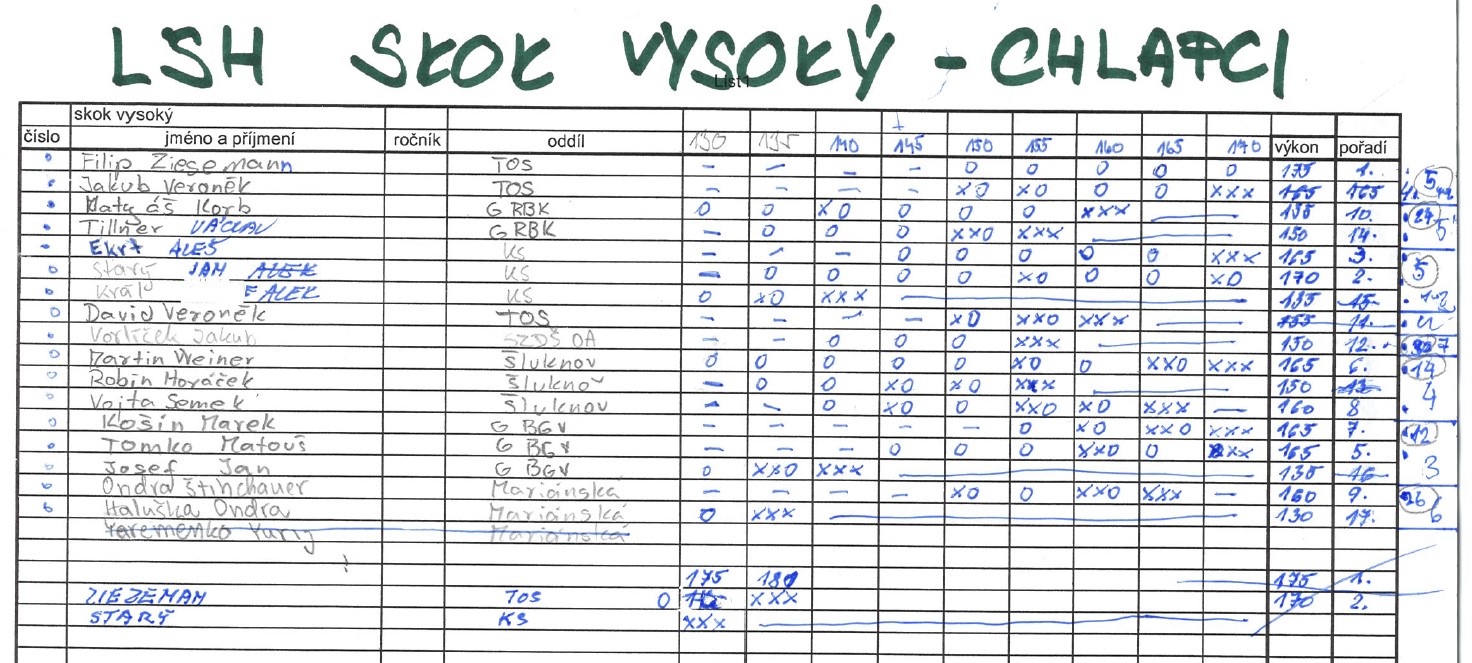 LSH SKOK VYSOKÝ - CHLAPCI
List1
skok vysoký
číslo jméno a příjmení ročník oddíl 130 135 140 145 150 155 160 165 170 výkon pořadí
Filip Ziesemann TOS - - - - O O O O O 175 1.
Jakub Veroněk TOS - - - - XO XO O O XXX 165
Matyáš Korb G RBK O O XO O O O XXX 155 10.
Tillner VÁCLAV G RBK - O O O XXO XXX 150 14.
Ekrt ALEŠ KS - - - O O O O O XXX 165 3.
Starý JAN KS - O O O O XO O O XO 170 2.
Král ALEK KS O XO XXX 135 15.
David Veroněk TOS - - - - XO XXO XXX 155 11.
Vorlíček Jakub SZDŠ OA - - O O O XXX 150 12.
Martin Weiner Šluknov O O O O O XO O XXO XXX 165 6.
Robin Horáček Šluknov - O O XO XO XXX 150 13.
Vojta Semek Šluknov - - O XO O XXO XO XXX - 160 8
Košin Marek G BGV - - - - - O XO XXO XXX 165 7.
Tomko Matouš G BGV - - - O O O XXO O XXX 165 5.
Josef Jan G BGV O XXO XXX 130 16.
Ondra Štinchauer Mariánská - - - - XO O XXO XXX - 160 9.
Haluška Ondra Mariánská O XXX 130 17.
Yaremenko Yuriy Mariánská
175 180 175 1.
ZIEZEMAN TOS O XXX 170 2.
STARÝ KS XXX